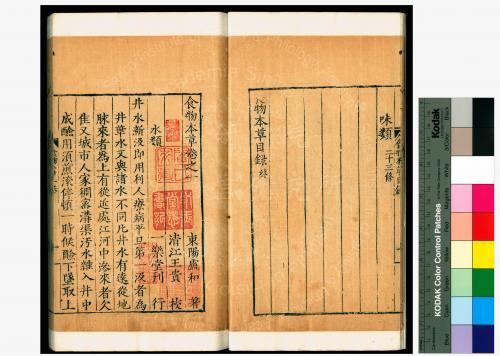 味類 二十三條
食物本草目録終
食物本草卷之一
東陽盧和 著
清江王貴 校
一樂堂刋 行
水類
井水新汲即用利人療病平旦第一汲者為
井華水又與諸水不同凡井水有遠從地
脉來者為上有從近處江河中滲來者欠
佳又城市人家稠宻溝渠污水雜入井中
成醶用須煎滚停頓一時候醶下墜取上
KODAK Color Control Patches
Kodak
Blue
Cyan
Green
Yellow
Red
Magenta
White
Black